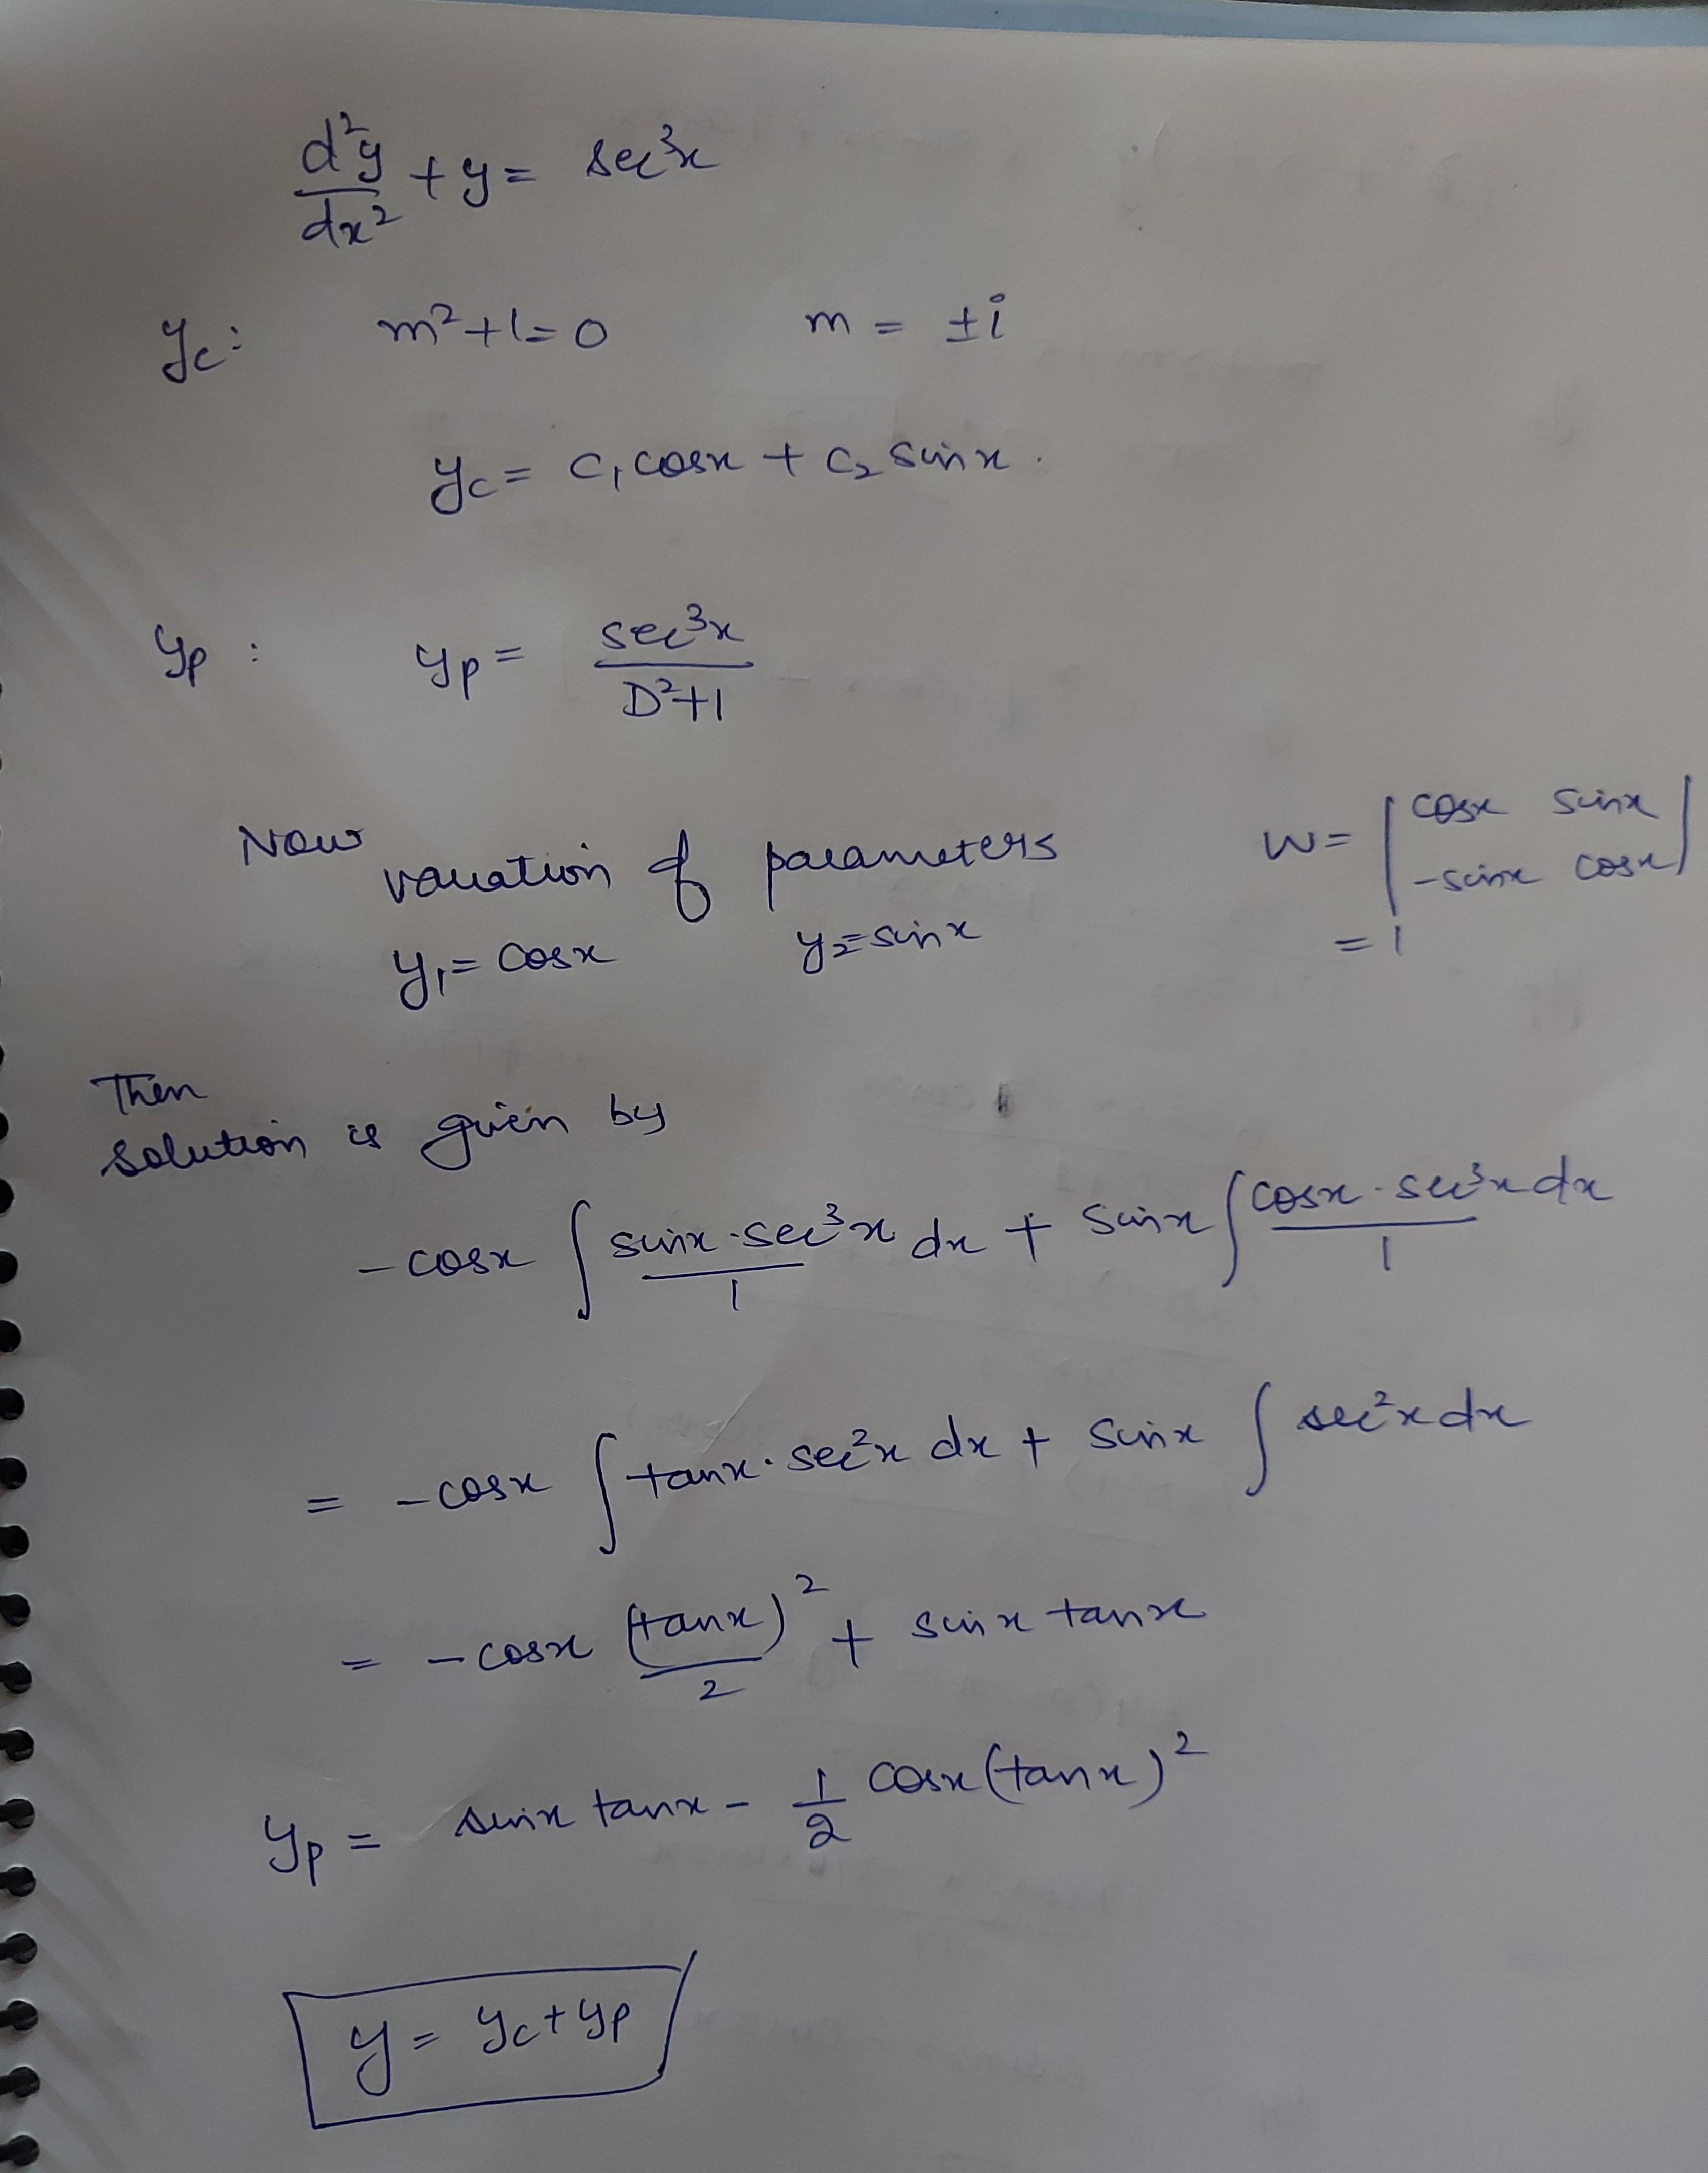 d²y/dx² + y = sec³x
y_c : m²+1=0 m = ±i
y_c = c₁cosx + c₂ sinx.
y_p : y_p = sec³x/(D²+1)
Now variation of parameters W = |cosx sinx|
|-sinx cosx|
y₁ = cosx y₂=sinx = 1
Then
solution is given by
-cosx ∫ (sinx·sec³x)/1 dx + sinx ∫ (cosx·sec³x dx)/1
= -cosx ∫ tanx·sec²x dx + sinx ∫ sec²x dx
= -cosx (tanx)²/2 + sinx tanx
y_p = sinx tanx - 1/2 cosx(tanx)²
y = y_c+y_p